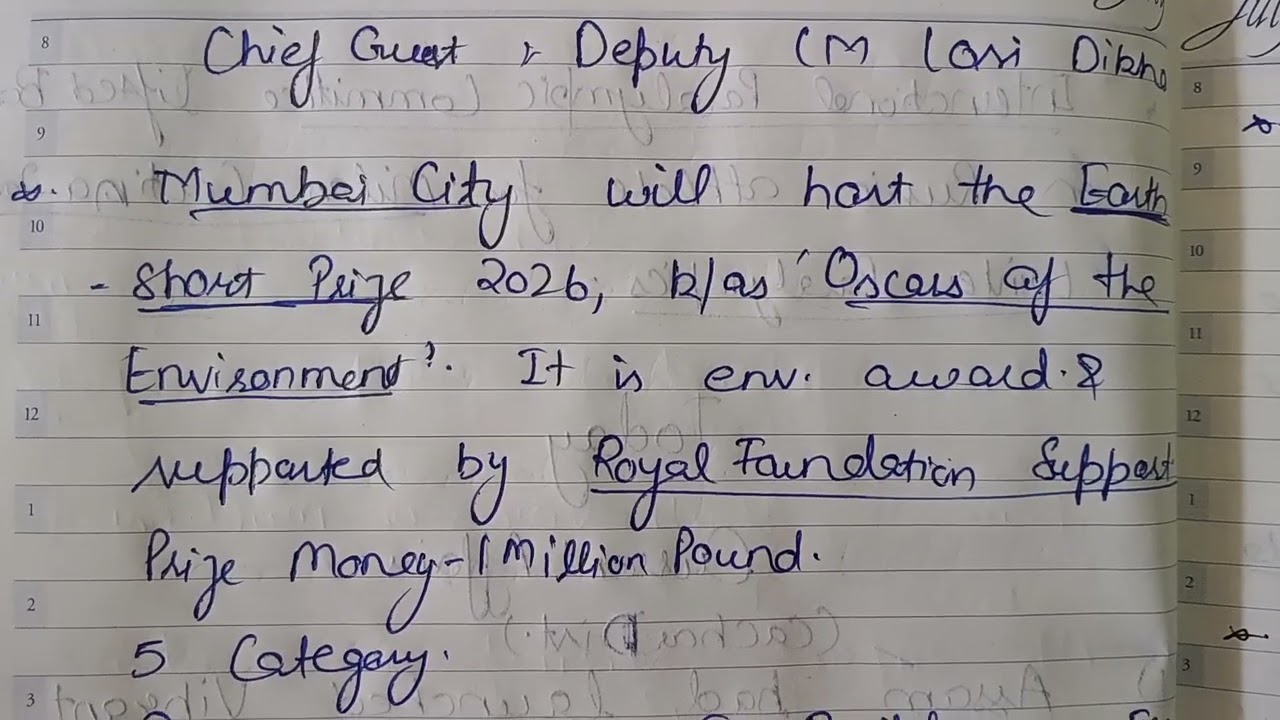 Chief Guest : Deputy CM
Mumbai City will host the Earth
- Short Prize 2026, k/as 'Oscars of the
Environment'. It is env. award. &
supported by Royal Foundation Support
Prize Money - 1 Million Pound.
5 Category.